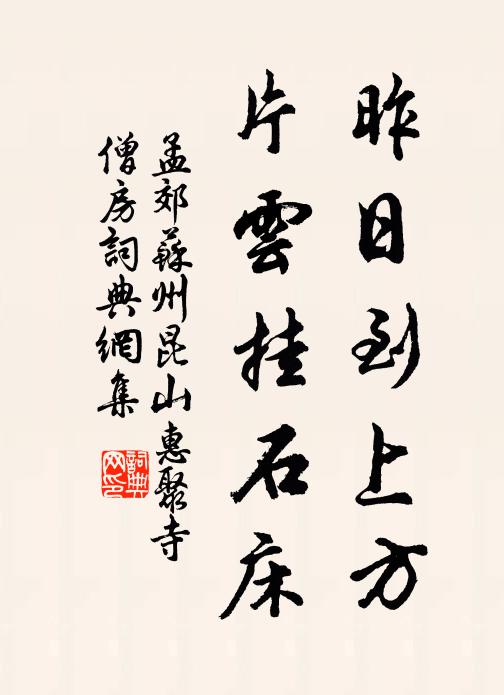 昨日到上方
片雲挂石床
孟郊蘇州昆山惠聚寺
僧房詞典網集
詞典
网印